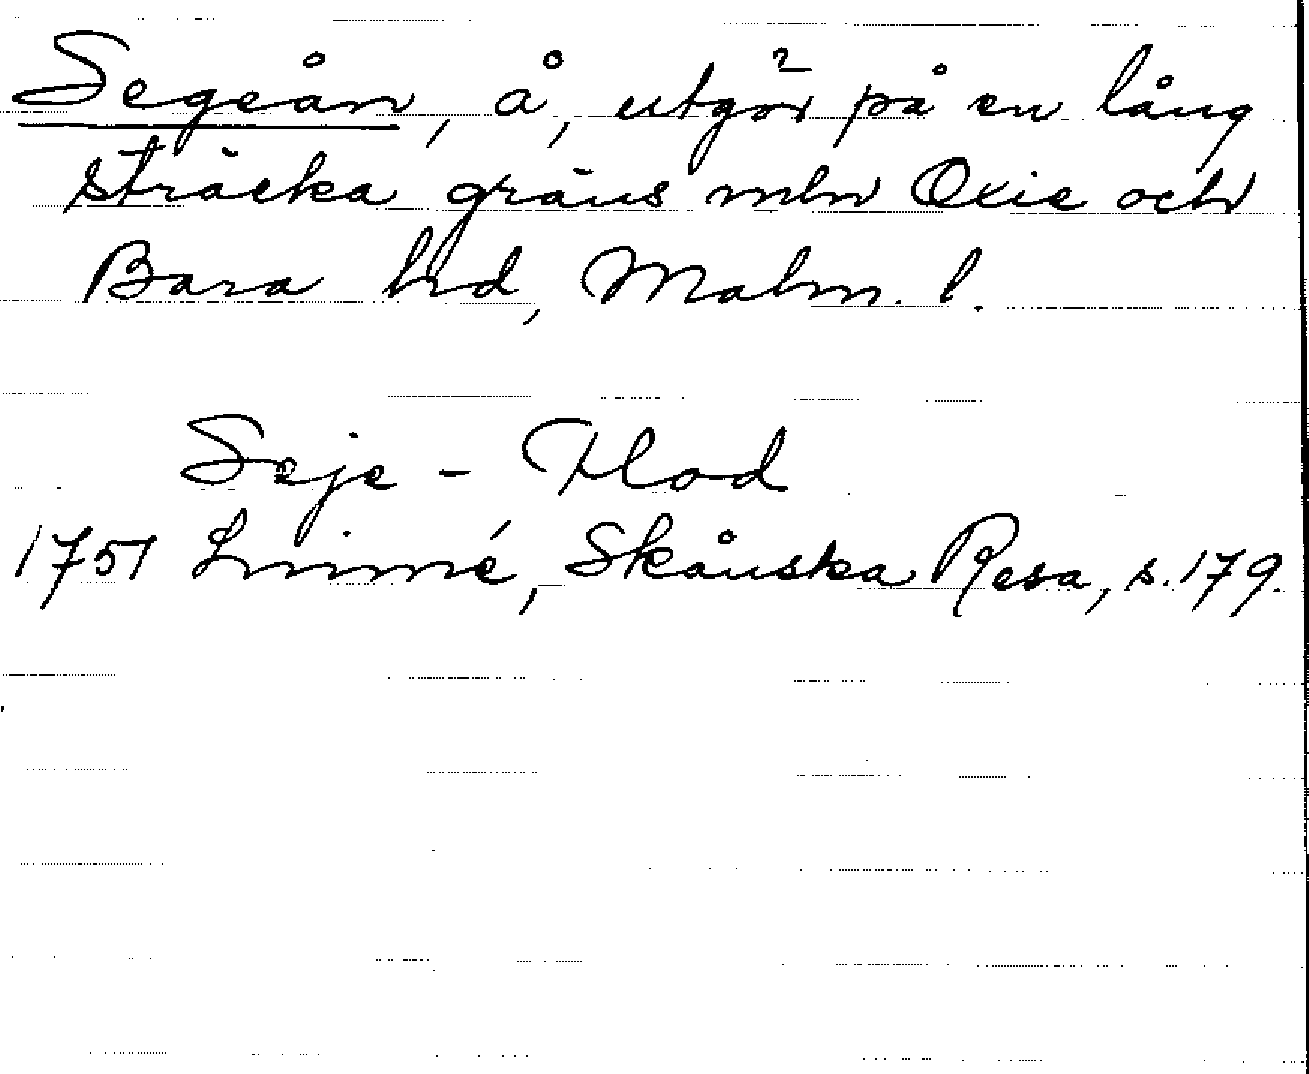 Segeån, å, utgör på en lång
sträcka gräns mln Oxie och
Bara hrd, Malm. l.
Seje - Flod
1751 Linné, Skånska Resa, s. 179.